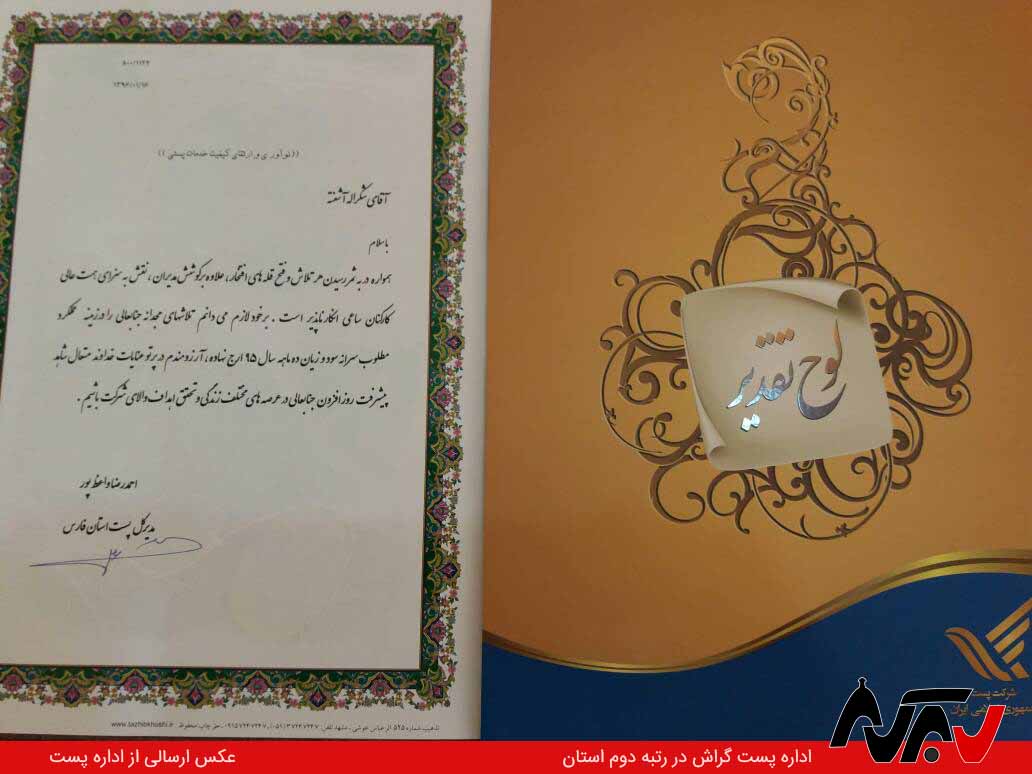 ۵۰۰/۱۱۲۴
۱۳۹۶/۰۱/۱۶
((نوآوری و ارتقای کیفیت خدمات پستی))
آقای شکراله آشفته
باسلام
همواره در به ثمر رسیدن هر تلاش و فتح قله های افتخار، علاوه بر کوشش مدیران، نقش به سزای همت عالی
کارکنان ساعی انکارناپذیر است. برخود لازم می دانم تلاشهای مجدانه جنابعالی را در زمینه عملکرد
مطلوب سرانه سود و زیان ده ماهه سال ۹۵ ارج نهاده، آرزومندم در پرتو عنایات خداوند متعال شاهد
پیشرفت روز افزون جنابعالی در عرصه های مختلف زندگی و تحقق اهداف والای شرکت باشیم.
احمدرضا واعظ پور
مدیرکل پست استان فارس
تذهیب شماره ۵۲۵ اثر عباس خوشی. مشهد تلفن: www.tazhibkhoshi.ir حق چاپ محفوظ
لوح تقدیر
شرکت پست
اداره پست گراش در رتبه دوم استان
عکس ارسالی از اداره پست